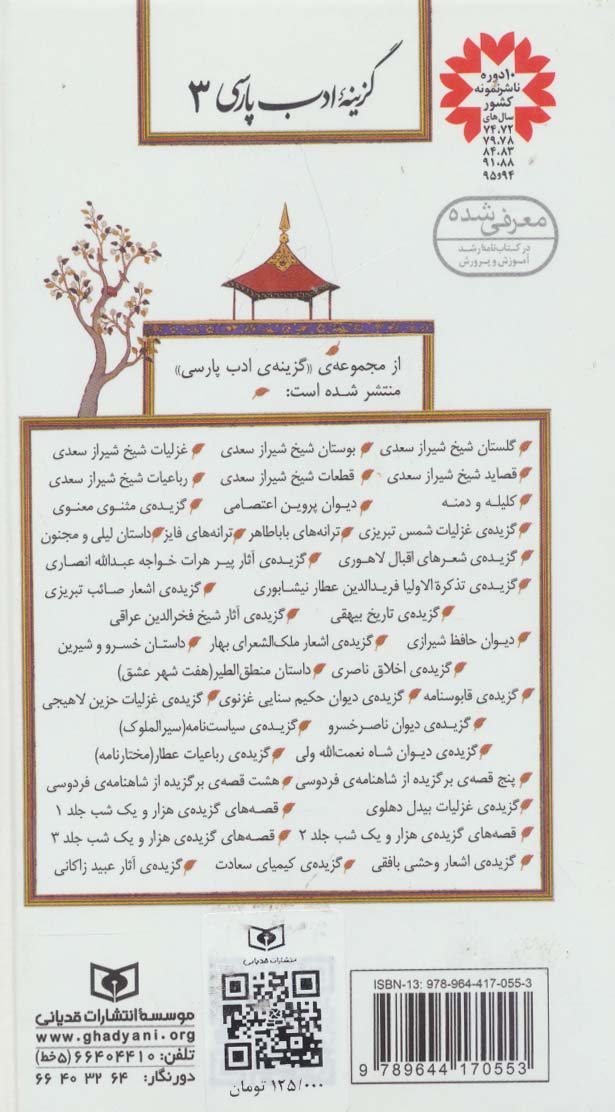 گزینهٔ ادب پارسی ۳
۱۰ دوره
ناشر نمونه
کشور
سال‌های
۷۴،۷۲
۷۹،۷۸
۸۴،۸۳
۹۱،۸۸
۹۴و۹۵
معرفی شده
در کتاب‌نامهٔ رشد
آموزش و پرورش
از مجموعه‌ی «گزینه‌ی ادب پارسی»
منتشر شده است:
گلستان شیخ شیراز سعدی بوستان شیخ شیراز سعدی غزلیات شیخ شیراز سعدی
قصاید شیخ شیراز سعدی قطعات شیخ شیراز سعدی رباعیات شیخ شیراز سعدی
کلیله و دمنه دیوان پروین اعتصامی گزیده‌ی مثنوی معنوی
گزیده‌ی غزلیات شمس تبریزی ترانه‌های باباطاهر ترانه‌های فایز داستان لیلی و مجنون
گزیده‌ی شعرهای اقبال لاهوری گزیده‌ی آثار پیر هرات خواجه عبدالله انصاری
گزیده‌ی تذکرة الاولیا فریدالدین عطار نیشابوری گزیده‌ی اشعار صائب تبریزی
گزیده‌ی تاریخ بیهقی گزیده‌ی آثار شیخ فخرالدین عراقی
دیوان حافظ شیرازی گزیده‌ی اشعار ملک‌الشعرای بهار داستان خسرو و شیرین
گزیده‌ی اخلاق ناصری داستان منطق‌الطیر(هفت شهر عشق)
گزیده‌ی قابوسنامه گزیده‌ی دیوان حکیم سنایی غزنوی گزیده‌ی غزلیات حزین لاهیجی
گزیده‌ی دیوان ناصرخسرو گزیده‌ی سیاست‌نامه(سیرالملوک)
گزیده‌ی دیوان شاه نعمت‌الله ولی گزیده‌ی رباعیات عطار(مختارنامه)
پنج قصه‌ی برگزیده از شاهنامه‌ی فردوسی هشت قصه‌ی برگزیده از شاهنامه‌ی فردوسی
گزیده‌ی غزلیات بیدل دهلوی قصه‌های گزیده‌ی هزار و یک شب جلد ۱
قصه‌های گزیده‌ی هزار و یک شب جلد ۲ قصه‌های گزیده‌ی هزار و یک شب جلد ۳
گزیده‌ی اشعار وحشی بافقی گزیده‌ی کیمیای سعادت گزیده‌ی آثار عبید زاکانی
موسسهٔ انتشارات قدیانی
www.ghadyani.org
تلفن: ۶۶۴۰۴۴۱۰ (۵خط)
دورنگار: ۶۶ ۴۰ ۳۲ ۶۴
انتشارات قدیانی
۱۲۵/۰۰۰ تومان
ISBN-13: 978-964-417-055-3
9 789644 170553